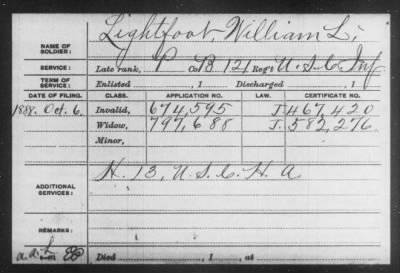 NAME OF SOLDIER: Lightfoot, William L.
SERVICE: Late rank, P Co. B 121 Reg't U.S.C. Inf
TERM OF SERVICE: Enlisted , 1 Discharged , 1
DATE OF FILING. CLASS. APPLICATION NO. LAW. CERTIFICATE NO.
1888. Oct. 6. Invalid, 674,595 J. 467,420
Widow, 797,688 J. 582,276.
Minor,
ADDITIONAL SERVICES: H. 13, U.S.C.H.A.
REMARKS:
Died , 1 , at